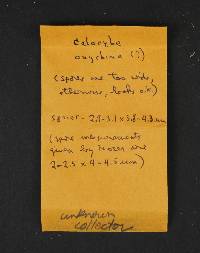 Calocybe
onychina (?)
(spores are too wide,
otherwise, looks ok)
spores - 2.7-3.1 x 3.8-4.3 um
(spore measurements
given by Moser are
2-2.5 x 4-4.5 um)
unknown
collector